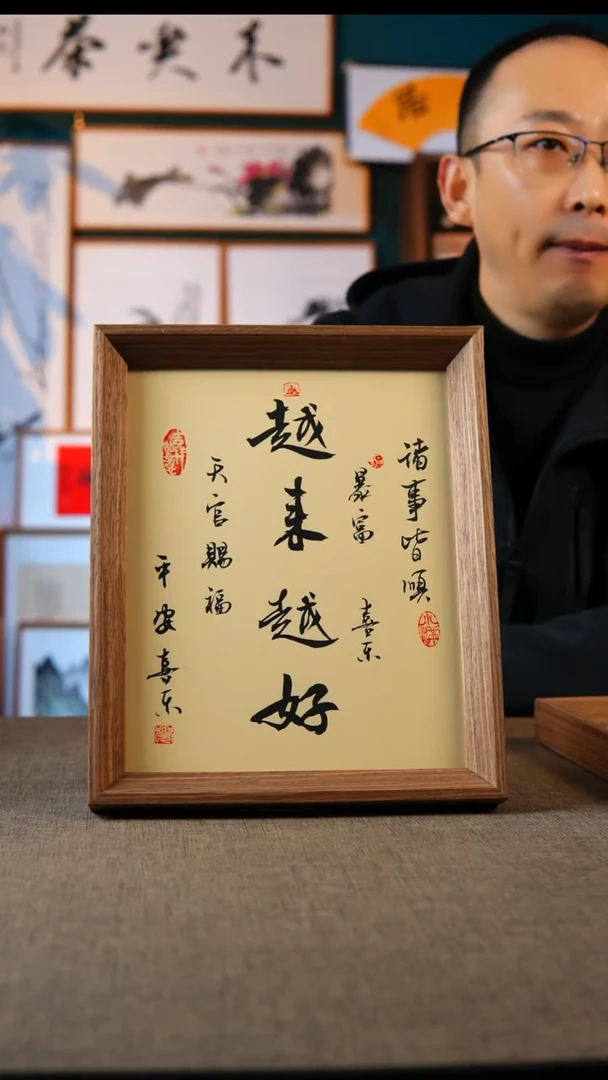 诸事皆順
暴富 喜乐
越来越好
天官賜福
平安喜乐
茶